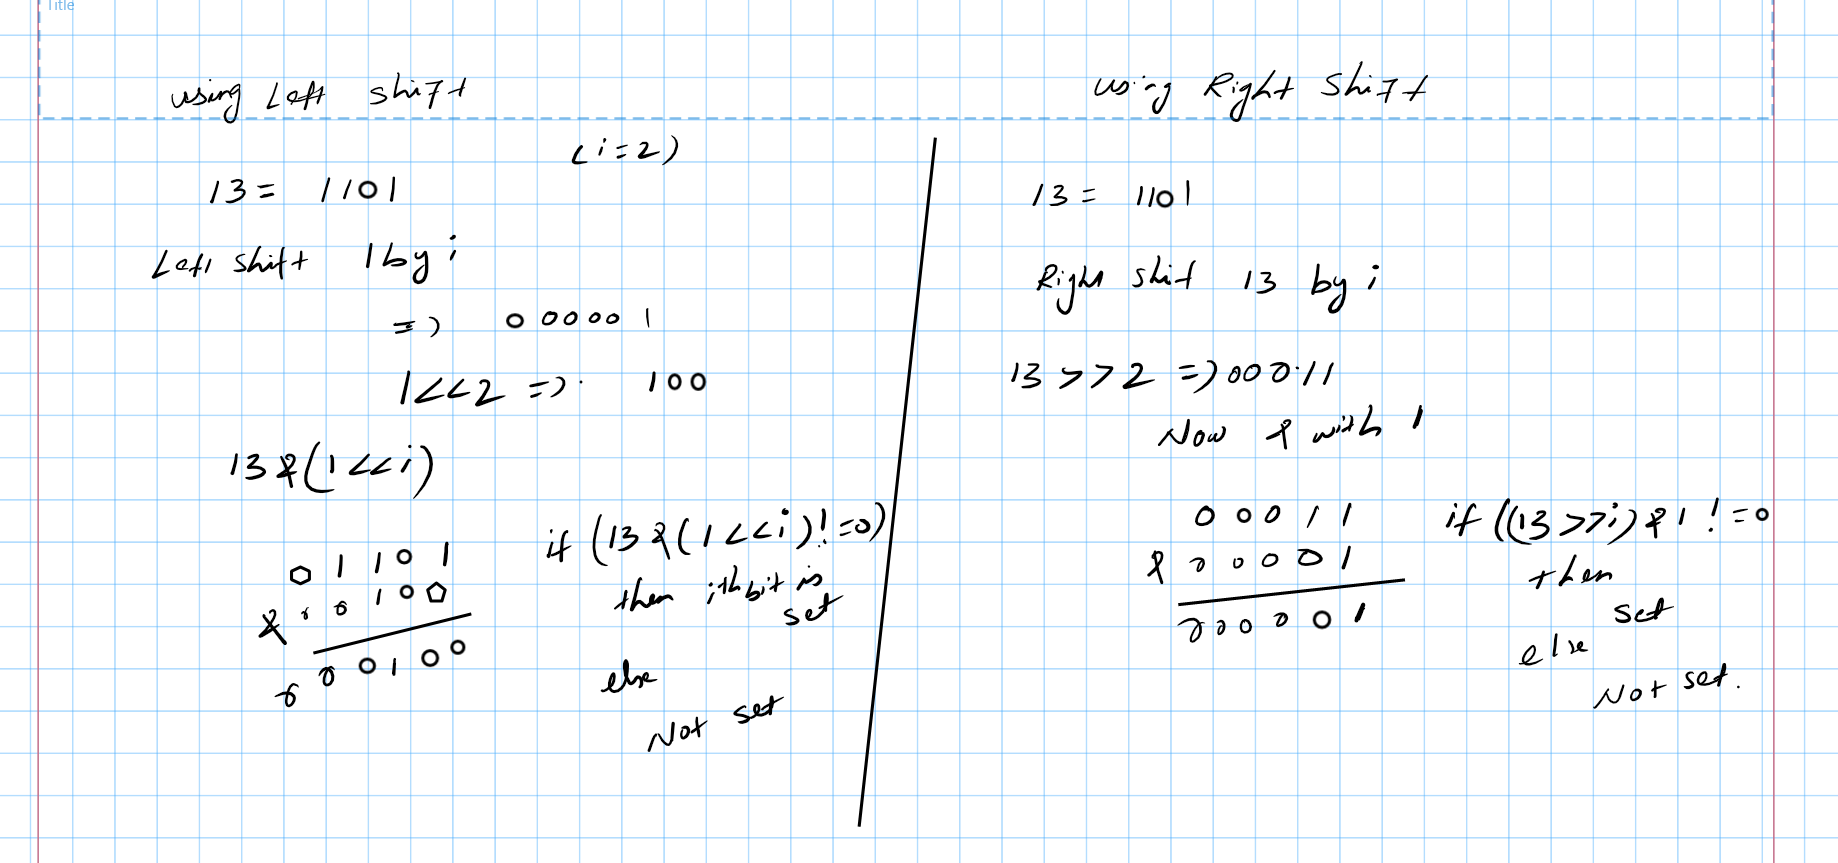 Title
using Left shift
(i=2)
13 = 1101
Left shift 1 by i
=> 000001
1<<2 => 100
13&(1<<i)
01101
& 00100
000100
if (13&(1<<i)!=0)
then ith bit is
set
else
Not set
using Right Shift
13 = 1101
Right shift 13 by i
13 >> 2 => 00011
Now & with 1
00011
& 00001
000001
if ((13>>i)&1 != 0
then
set
else
Not set.